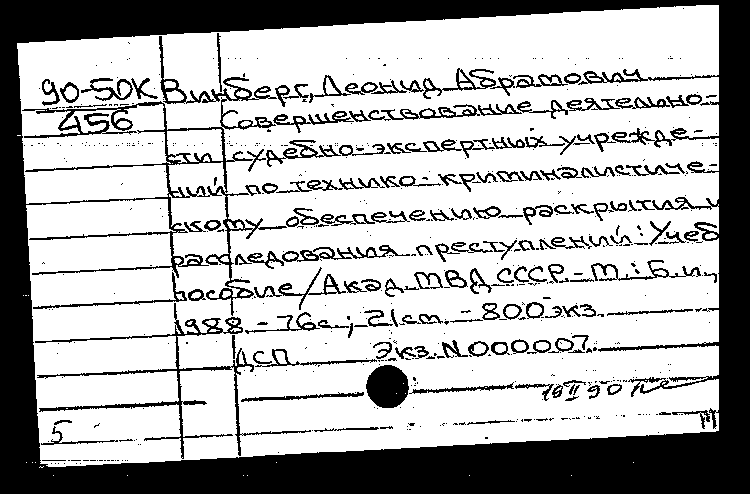 90-50К Винберг, Леонид Абрамович
456 Совершенствование деятельно-
сти судебно-экспертных учрежде-
ний по технико-криминалистиче-
скому обеспечению раскрытия и
расследования преступлений: Учеб
пособие/Акад. МВД СССР.-М.: Б.и.,
1988.-76с.; 21см.-800экз.
ДСП. Экз. N000007.
19 II 90
5